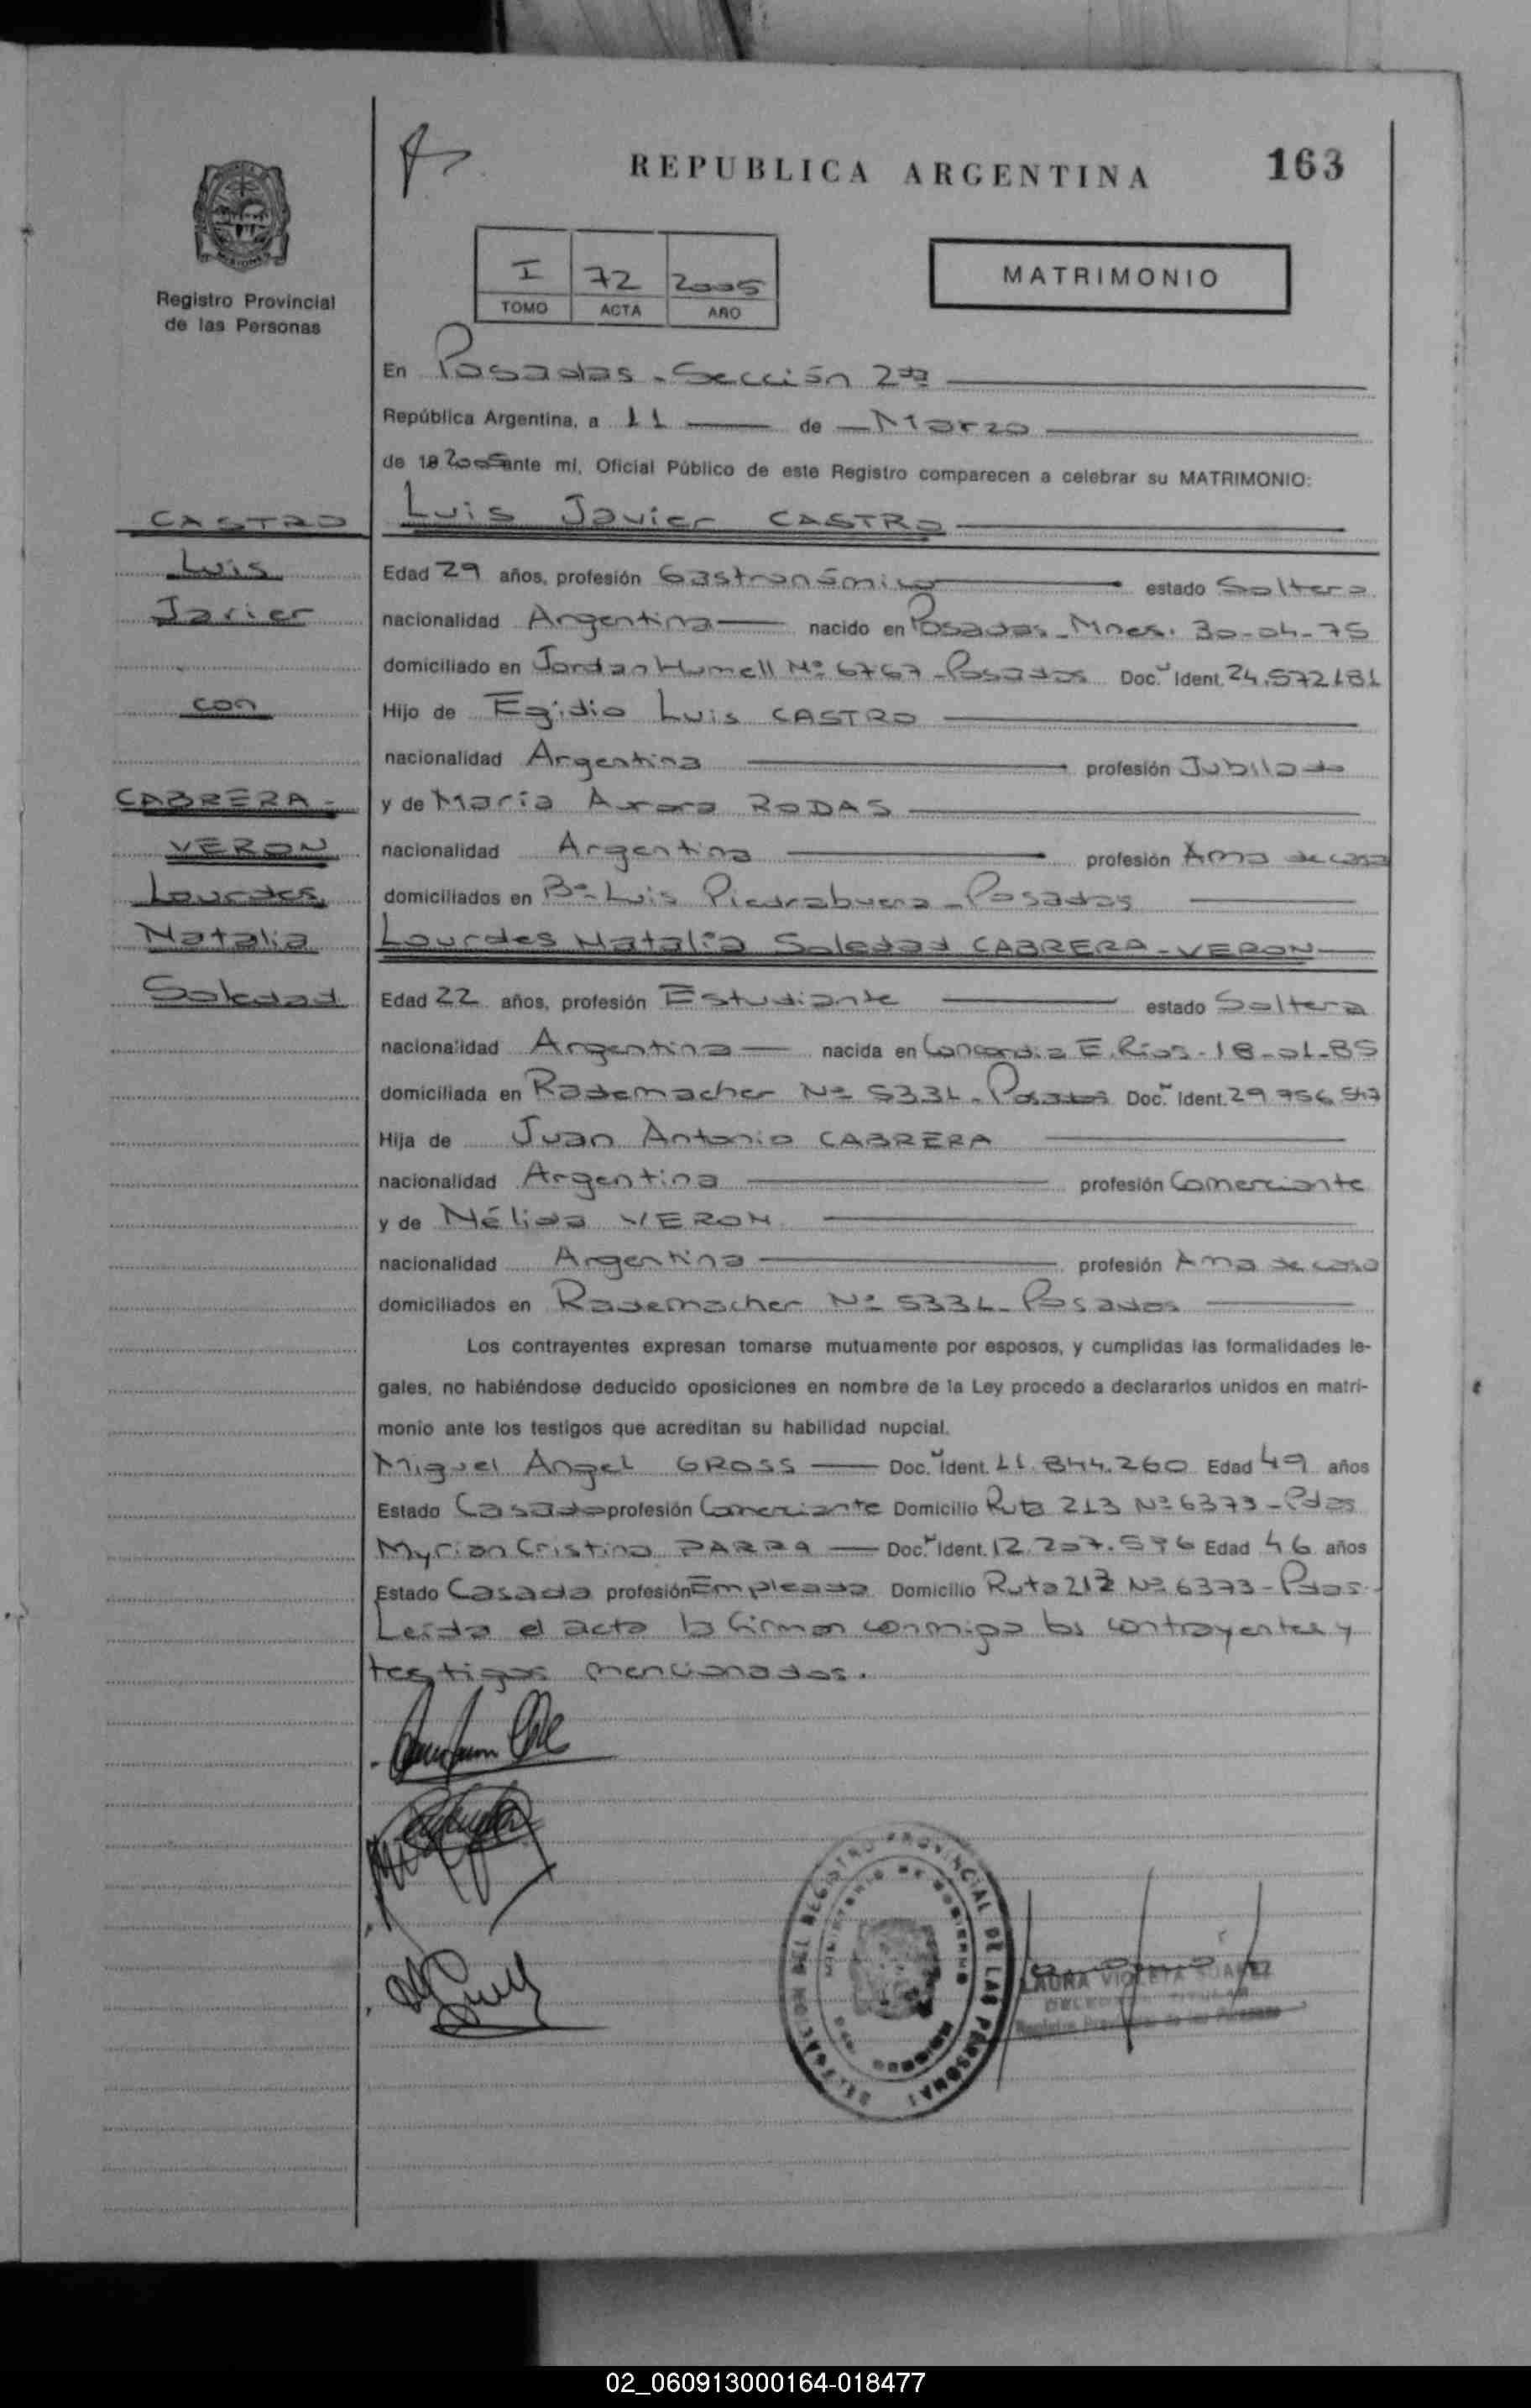 REPUBLICA ARGENTINA
163
Registro Provincial
de las Personas
I 72 2005
TOMO ACTA AÑO
MATRIMONIO
En Posadas - Sección 2da
República Argentina, a 11 de Marzo
de 19 2005 ante mí, Oficial Público de este Registro comparecen a celebrar su MATRIMONIO:
CASTRO
Luis
Javier
con
CABRERA-
VERON
Lourdes
Natalia
Soledad
Luis Javier CASTRO
Edad 29 años, profesión Gastronómico estado Soltero
nacionalidad Argentina nacido en Posadas - Mnes. 30-04-75
domiciliado en Jordan Humell Nº 6767 - Posadas Doc. Ident. 24.572181
Hijo de Egidio Luis CASTRO
nacionalidad Argentina profesión Jubilado
y de María Aurora RODAS
nacionalidad Argentina profesión Ama de casa
domiciliados en Bº Luis Piedrabuena - Posadas
Lourdes Natalia Soledad CABRERA-VERON
Edad 22 años, profesión Estudiante estado Soltera
nacionalidad Argentina nacida en Concordia E. Ríos - 18-01-85
domiciliada en Rademacher Nº 5331 - Posadas Doc. Ident. 29 756
Hija de Juan Antonio CABRERA
nacionalidad Argentina profesión Comerciante
y de Nélida VERON
nacionalidad Argentina profesión Ama de casa
domiciliados en Rademacher Nº 5331 - Posadas
Los contrayentes expresan tomarse mutuamente por esposos, y cumplidas las formalidades le-
gales, no habiéndose deducido oposiciones en nombre de la Ley procedo a declararlos unidos en matri-
monio ante los testigos que acreditan su habilidad nupcial.
Miguel Angel GROSS Doc. Ident. 11.844.260 Edad 49 años
Estado Casado profesión Comerciante Domicilio Ruta 213 Nº 6373 - Pdas
Myrian Cristina PARRA Doc. Ident. 12.207.596 Edad 46 años
Estado Casada profesión Empleada Domicilio Ruta 213 Nº 6373 - Pdas.
Leída el acta la firman conmigo los contrayentes y
testigos mencionados.
DELEGACION DEL REGISTRO PROVINCIAL DE LAS PERSONAS
MINISTERIO DE GOBIERNO
LAURA VIOLETA SUAREZ
DELEGADA TITULAR
Registro Provincial de las Personas
02_060913000164-018477